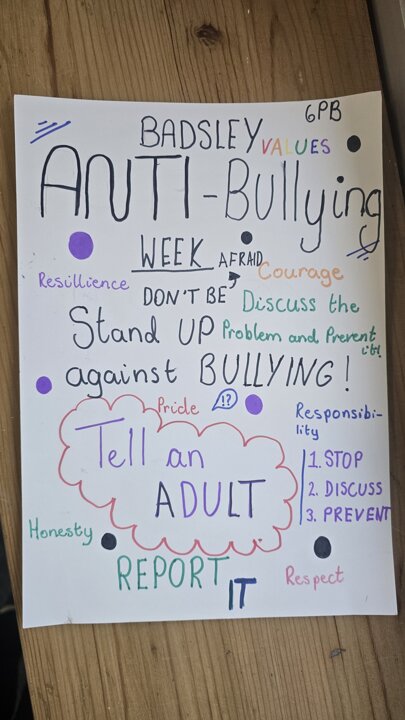 6PB
BADSLEY VALUES
ANTI-Bullying
WEEK
DON'T BE AFRAID
Courage
Resillience
Discuss the
Problem and Prevent
it!
Stand UP
against BULLYING!
Pride
!?
Responsibi-
lity
Tell an
ADULT
1. STOP
2. DISCUSS
3. PREVENT
Honesty
REPORT
IT
Respect